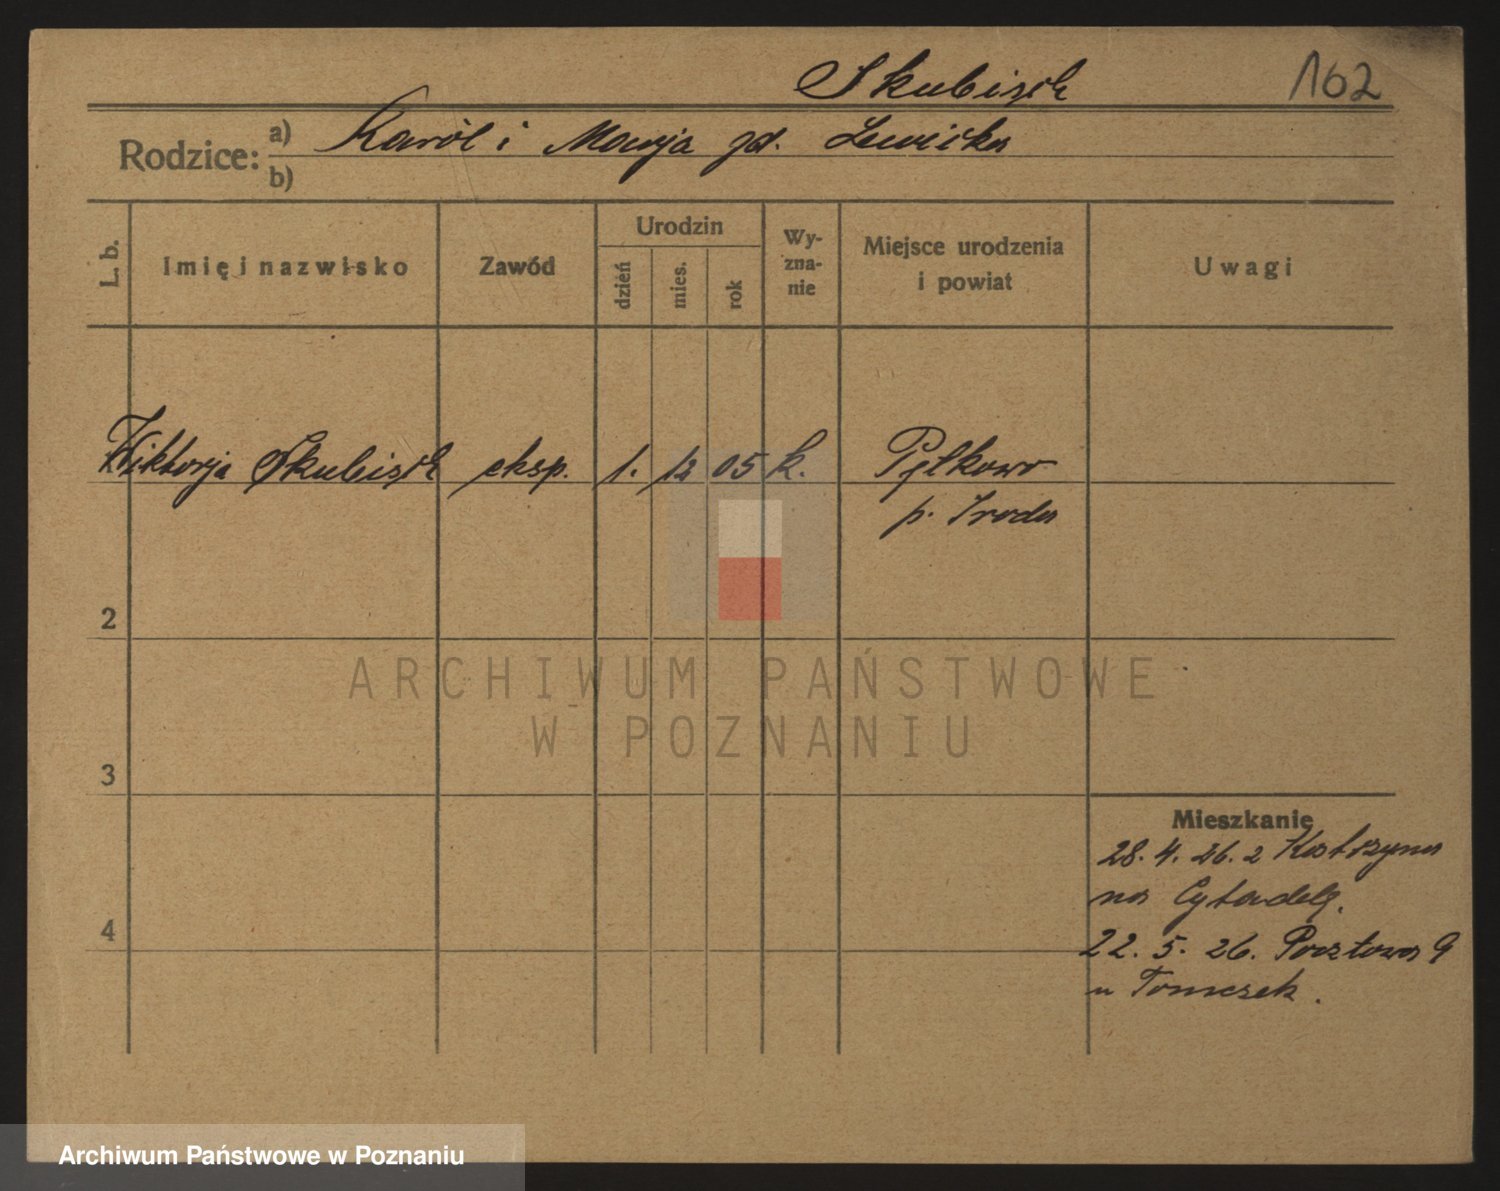 Skubisch 162
Rodzice: a) Karól i Marja zd. Lewicka
b)
L. b.
Imię i nazwisko
Zawód
Urodzin
dzień
mies.
rok
Wy-
zna-
nie
Miejsce urodzenia
i powiat
Uwagi
Wiktorja Skubisch eksp. 1. 12 05 k. Pętkowo
p. Środa
2
3
4
Mieszkanie
28. 4. 26. z Kostrzyna
na Cytadelę.
22. 5. 26. Pocztowa 9
u Tomczek.
ARCHIWUM PAŃSTWOWE
W POZNANIU
Archiwum Państwowe w Poznaniu